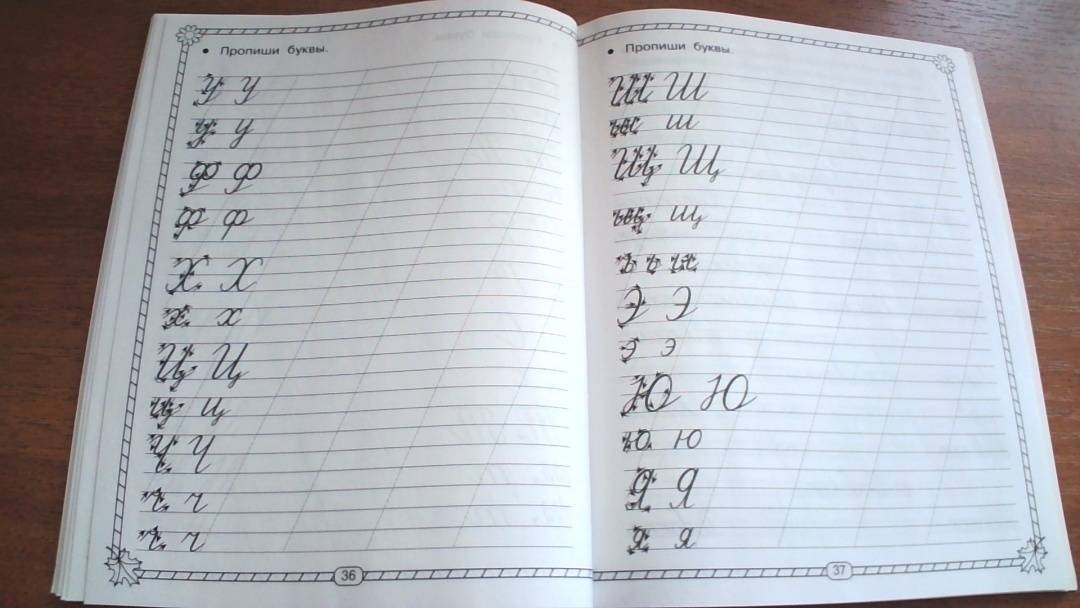 Пропиши буквы.
У У
у у
Ф Ф
ф ф
Х Х
х х
Ц Ц
ц ц
Ч Ч
ч ч
ч ч
36
Пропиши буквы.
Ш Ш
ш ш
Щ Щ
щ щ
ъ ь ы
Э Э
э э
Ю Ю
ю ю
Я Я
я я
37